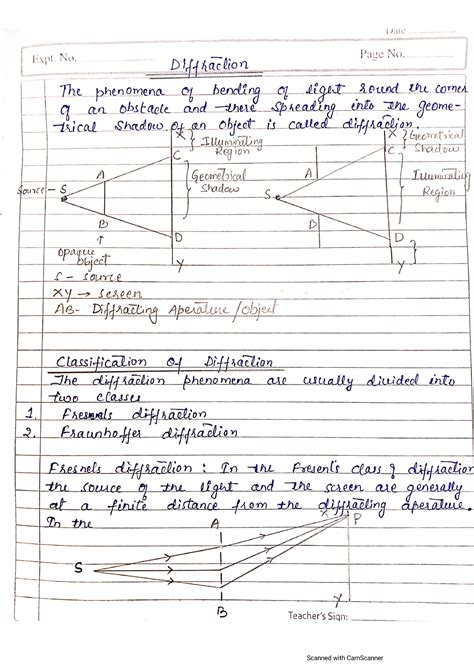 Date
Expt. No.
Page No.
Diffraction
The phenomena of bending of light round the corner
of an obstacle and there spreading into the geome-
trical shadow of an object is called diffraction.
X
Illuminating
Region
C
A
Geometrical
Shadow
Source - S
B
D
Opaque
object
Y
X
Geometrical
Shadow
C
A
Illuminating
Region
S
B
D
Y
S - source
XY → screen
AB- Diffracting Aperature / object
Classification of Diffraction
The diffraction phenomena are usually divided into
two classes
1. Fresnels diffraction
2. Fraunhoffer diffraction
Fresnels diffraction : In the Fresent's class of diffraction
the source of the light and the screen are generally
at a finite distance from the diffracting aperature.
In the
A
X
P
S
B
Y
Teacher's Sign:
Scanned with CamScanner